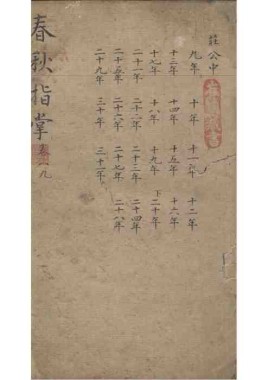 莊公中
九年 十年 十一年 十二年
十三年 十四年 十五年 十六年
十七年 十八年 十九年 下二十年
二十一年 二十二年 二十三年 二十四年
二十五年 二十六年 二十七年 二十八年
二十九年 三十年 三十一年
春秋指掌 卷 九